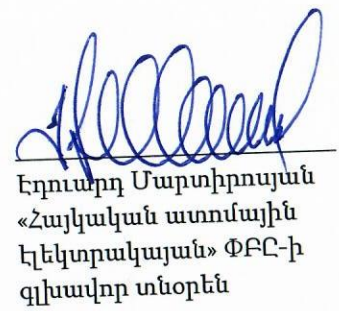 Էդուարդ Մարտիրոսյան
«Հայկական ատոմային
էլեկտրակայան» ՓԲԸ-ի
գլխավոր տնօրեն